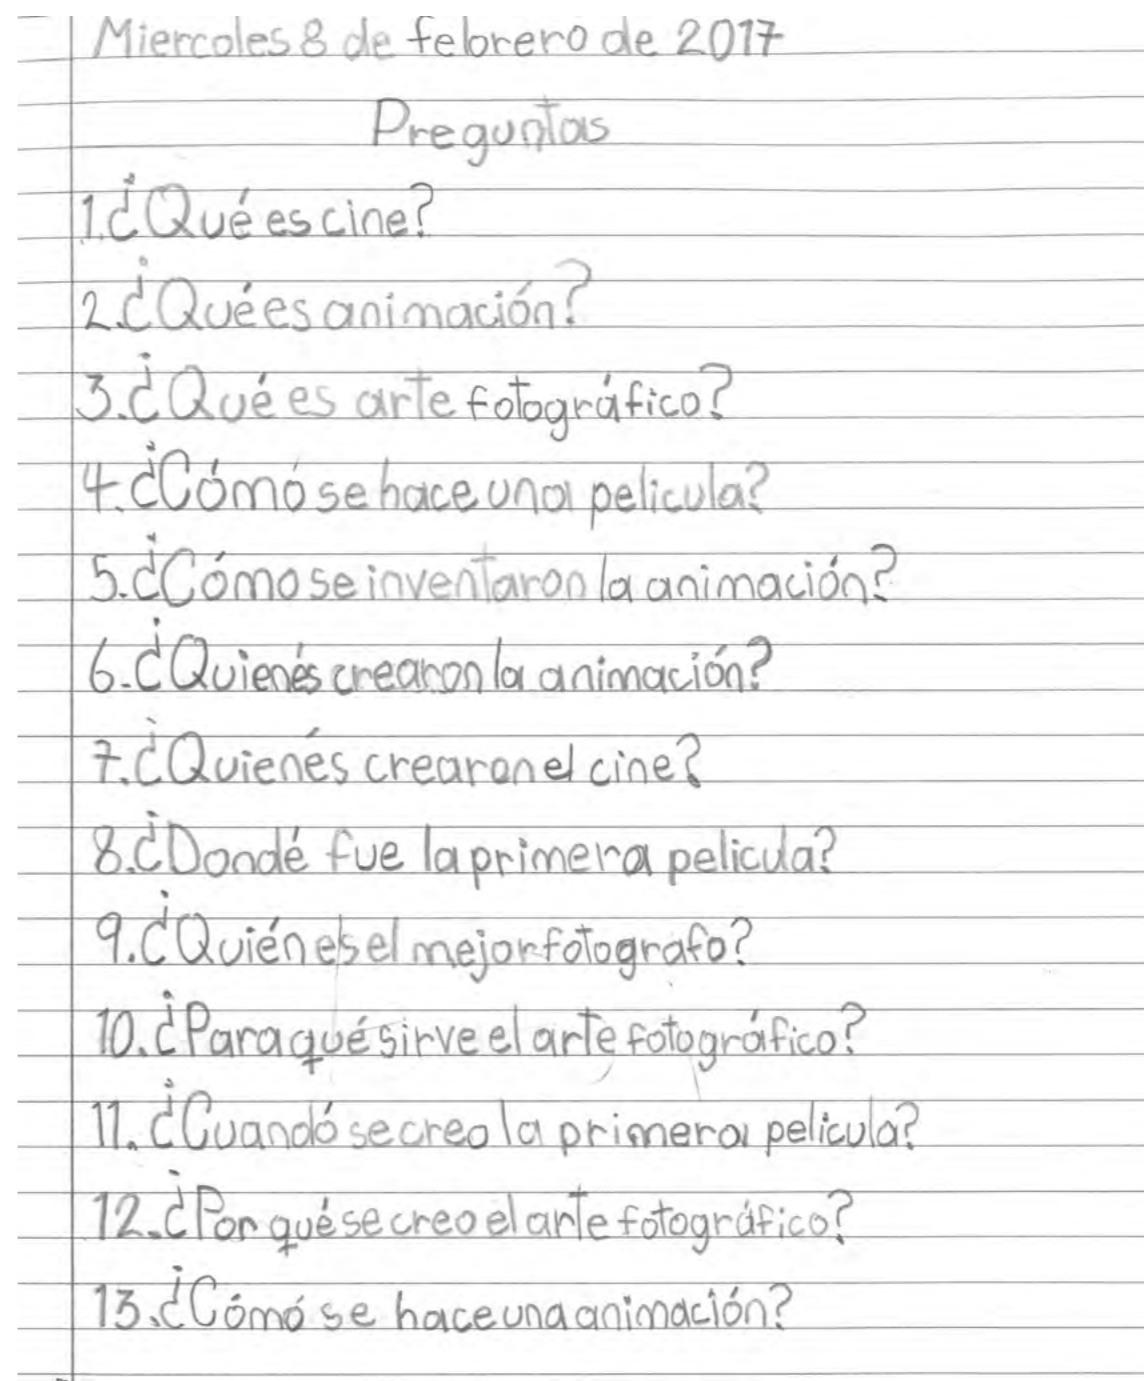 Miercoles 8 de febrero de 2017
Preguntas
1. ¿Qué es cine?
2. ¿Qué es animación?
3. ¿Qué es arte fotográfico?
4. ¿Cómó se hace una pelicula?
5. ¿Cómo se inventaron la animación?
6. ¿Quienés crearon la animación?
7. ¿Quienés crearon el cine?
8. ¿Dondé fue la primera pelicula?
9. ¿Quién es el mejor fotografo?
10. ¿Para qué sirve el arte fotográfico?
11. ¿Cuandó se creo la primera pelicula?
12. ¿Por qué se creo el arte fotográfico?
13. ¿Cómó se hace una animación?